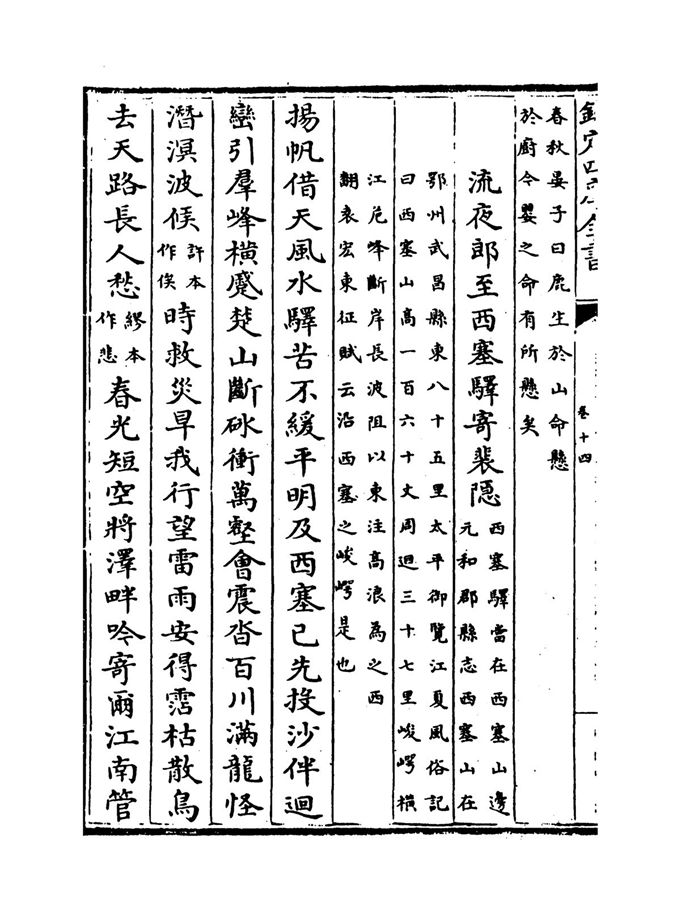 欽定四庫全書
卷十四
春秋晏子曰鹿生於山命懸
於廚今嬰之命有所懸矣
流夜郎至西塞驛寄裴隱
西塞驛當在西塞山邊
元和郡縣志西塞山在
鄂州武昌縣東八十五里太平御覽江夏風俗記
曰西塞山高一百六十丈周迴三十七里峻崿橫
江危峰斷岸長波阻以東注高浪為之西
翻袁宏東征賦云沿西塞之峻崿是也
揚帆借天風水驛苦不緩平明及西塞已先投沙伴迴
巒引羣峰橫蹙楚山斷砯衝萬壑會震沓百川滿龍怪
潛溟波候許本作俟時救災旱我行望雷雨安得霑枯散鳥
去天路長人愁繆本作悲春光短空將澤畔吟寄爾江南管